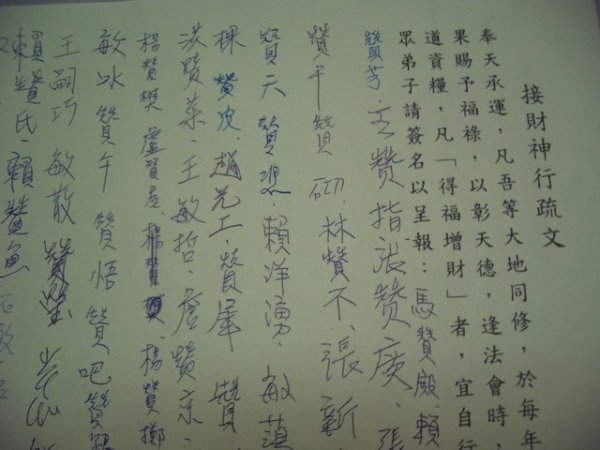 接財神行疏文
奉天承運，凡吾等大地同修，於每年
果賜予福祿，以彰天德，逢法會時，
道資糧，凡「得福增財」者，宜自行
眾弟子請簽名以呈報：馬贊殿、賴
贊芳、王贊指、張贊廣、張
贊午、贊砌、林贊不、張新
贊天、賴淳湧、敏蓮
棵、贊皮、趙元工、贊犀、贊
洪贊菜、王敏哲、詹贊京、
楊贊樊、盧贊星、楊贊擲
敏冰、贊午、贊悟、贊吧
王嗣巧、敏散
賴贊氏、賴贊魚